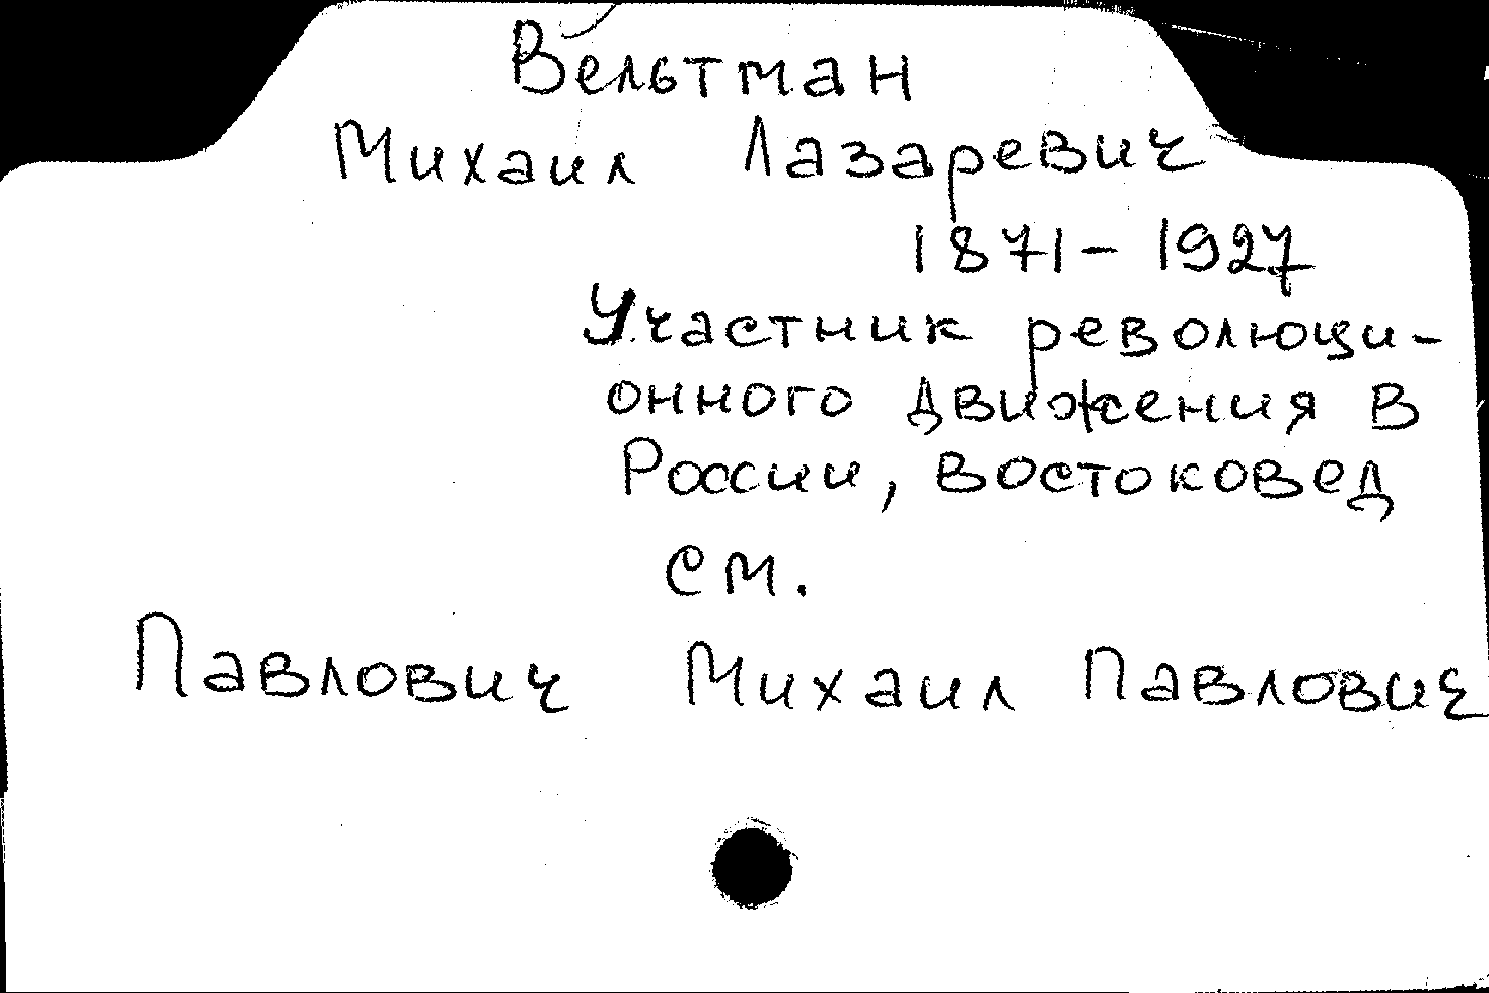 Вельтман
Михаил Лазаревич
1871-1927
Участник революци-
онного движения в
России, востоковед
см.
Павлович Михаил Павлович